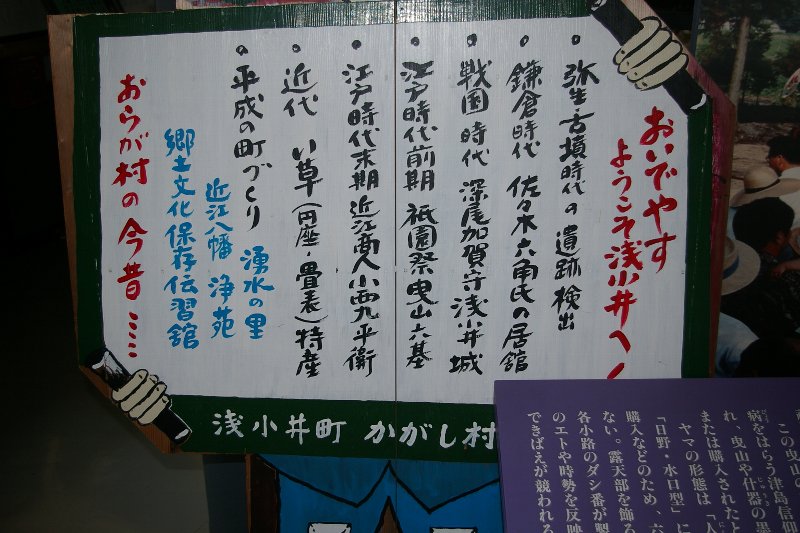 おいでやす
ようこそ浅小井へ
・弥生・古墳時代の遺跡検出
・鎌倉時代 佐々木六角氏の居舘
・戦国時代 深尾加賀守浅小井城
・江戸時代前期 祇園祭曳山六基
・江戸時代末期 近江商人小西九平衛
・近代 い草（円座・畳表）特産
・平成の町づくり 湧水の里
近江八幡 浄苑
郷土文化保存伝習舘
おらが村の今昔……
浅小井町 かがし村
この曳山の
病をはらう津島信仰
れ、曳山や什器の墨
または購入されたと
ヤマの形態は「人
「日野・水口型」に
購入などのため、六
ない。露天部を飾る
各小路のダシ番が製
のエトや時勢を反映
できばえが競われる